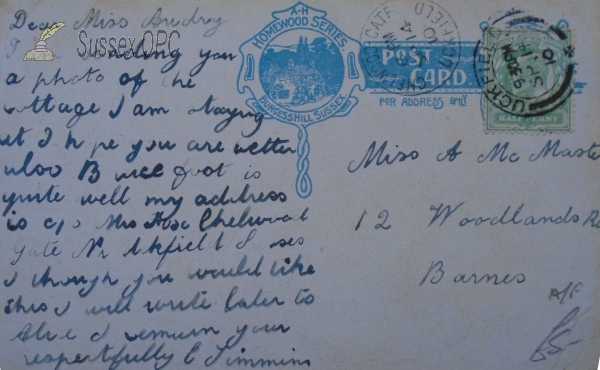 Dear Miss Audry
I am sending you
a photo of the
cottage I am staying
at I hope you are better
also B foot is
quite well my address
is c/o Mrs Chelwood
Gate Nr Uckfield Sussex
I though you would like
this I will write later to
I remain your
respectfully E Simmins
SussexOPC
A·H
HOMEWOOD SERIES
BURGESS HILL, SUSSEX
POST CARD
FOR ADDRESS ONLY
CHELWOOD GATE
UCKFIELD
UCKFIELD
HALFPENNY
Miss A Mc Maste
12 Woodlands Rd
Barnes
£5-